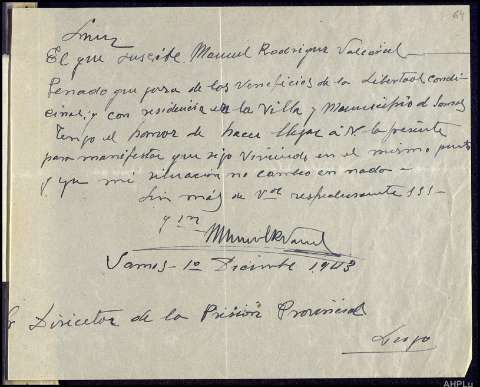 64
El que suscribe Manuel Rodriguez Valcárcel
Penado que goza de los Veneficios de la Libertad condi
cional, y con residencia en la Villa y Municipio d Samos
Tengo el honor de hacer llegar á V la presente
para manifestar que sijo Viviendo en el mismo punto
y que mi situación no cambio en nada
Sin más de Vd respetuosamente SSS
Samos - 1º Diciembre 1943
Sr Director de la Prisión Provincial
Lugo
AHPLu